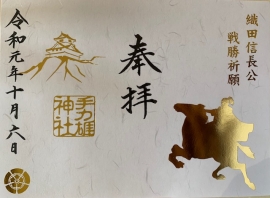 織田信長公
戦勝祈願
奉拝
手力雄
神社
令和元年十月六日